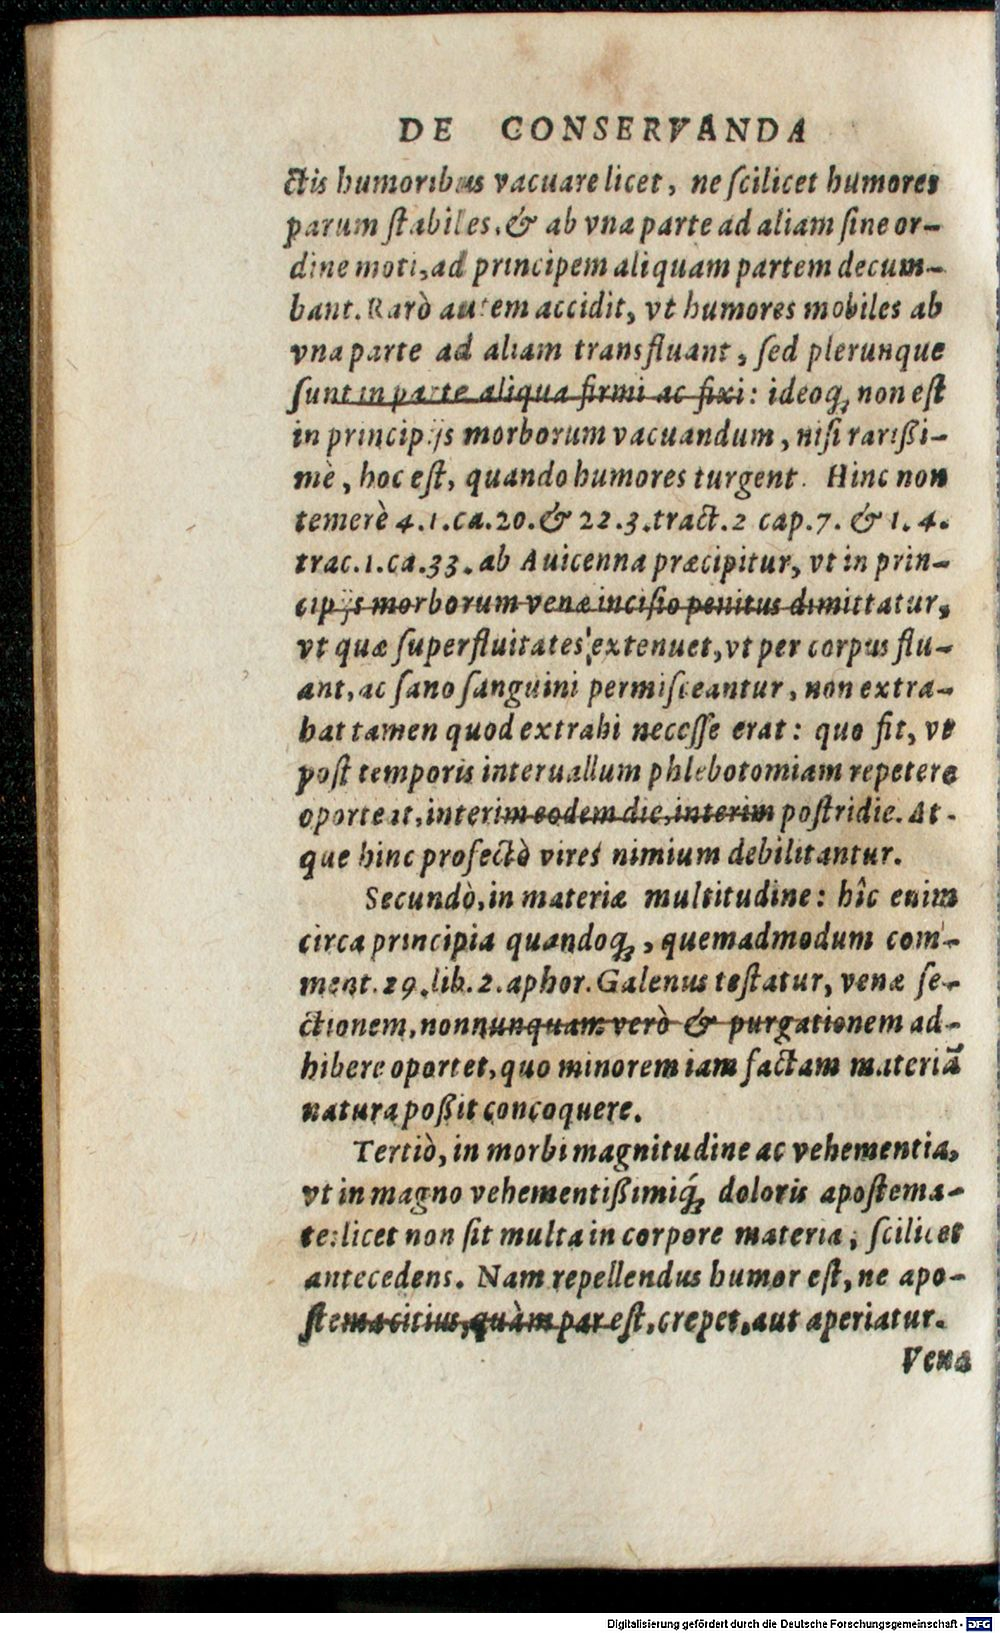 DE CONSERVANDA
ctis humoribus vacuare licet, ne ſcilicet humores
parum ſtabiles, & ab vna parte ad aliam ſine or-
dine moti, ad principem aliquam partem decum-
bant. Rarò autem accidit, vt humores mobiles ab
vna parte ad aliam transfluant, ſed plerunque
ſunt in parte aliqua firmi ac fixi: ideoq; non eſt
in principijs morborum vacuandum, niſi rarißi-
mè, hoc eſt, quando humores turgent. Hinc non
temerè 4.1.ca.20. & 22.3.tract.2 cap.7. & 1.4.
trac.1.ca.33. ab Auicenna præcipitur, vt in prin-
cipijs morborum venæ inciſio penitus dimittatur,
vt quæ ſuperfluitates extenuet, vt per corpus flu-
ant, ac ſano ſanguini permiſceantur, non extra-
hat tamen quod extrahi neceſſe erat: quo fit, vt
poſt temporis interuallum phlebotomiam repetere
oporteat, interim eodem die, interim poſtridie. At-
que hinc profectò vires nimium debilitantur.
Secundò, in materiæ multitudine: hîc enim
circa principia quandoq;, quemadmodum com-
ment.29.lib.2.aphor. Galenus teſtatur, venæ ſe-
ctionem, nonnunquam verò & purgationem ad-
hibere oportet, quo minorem iam factam materiã
natura poßit concoquere.
Tertiò, in morbi magnitudine ac vehementia,
vt in magno vehementißimiq́; doloris apoſtema-
te: licet non ſit multa in corpore materia, ſcilicet
antecedens. Nam repellendus humor eſt, ne apo-
ſtema citius, quàm par eſt, crepet, aut aperiatur.
Vena
Digitalisierung gefördert durch die Deutsche Forschungsgemeinschaft - DFG